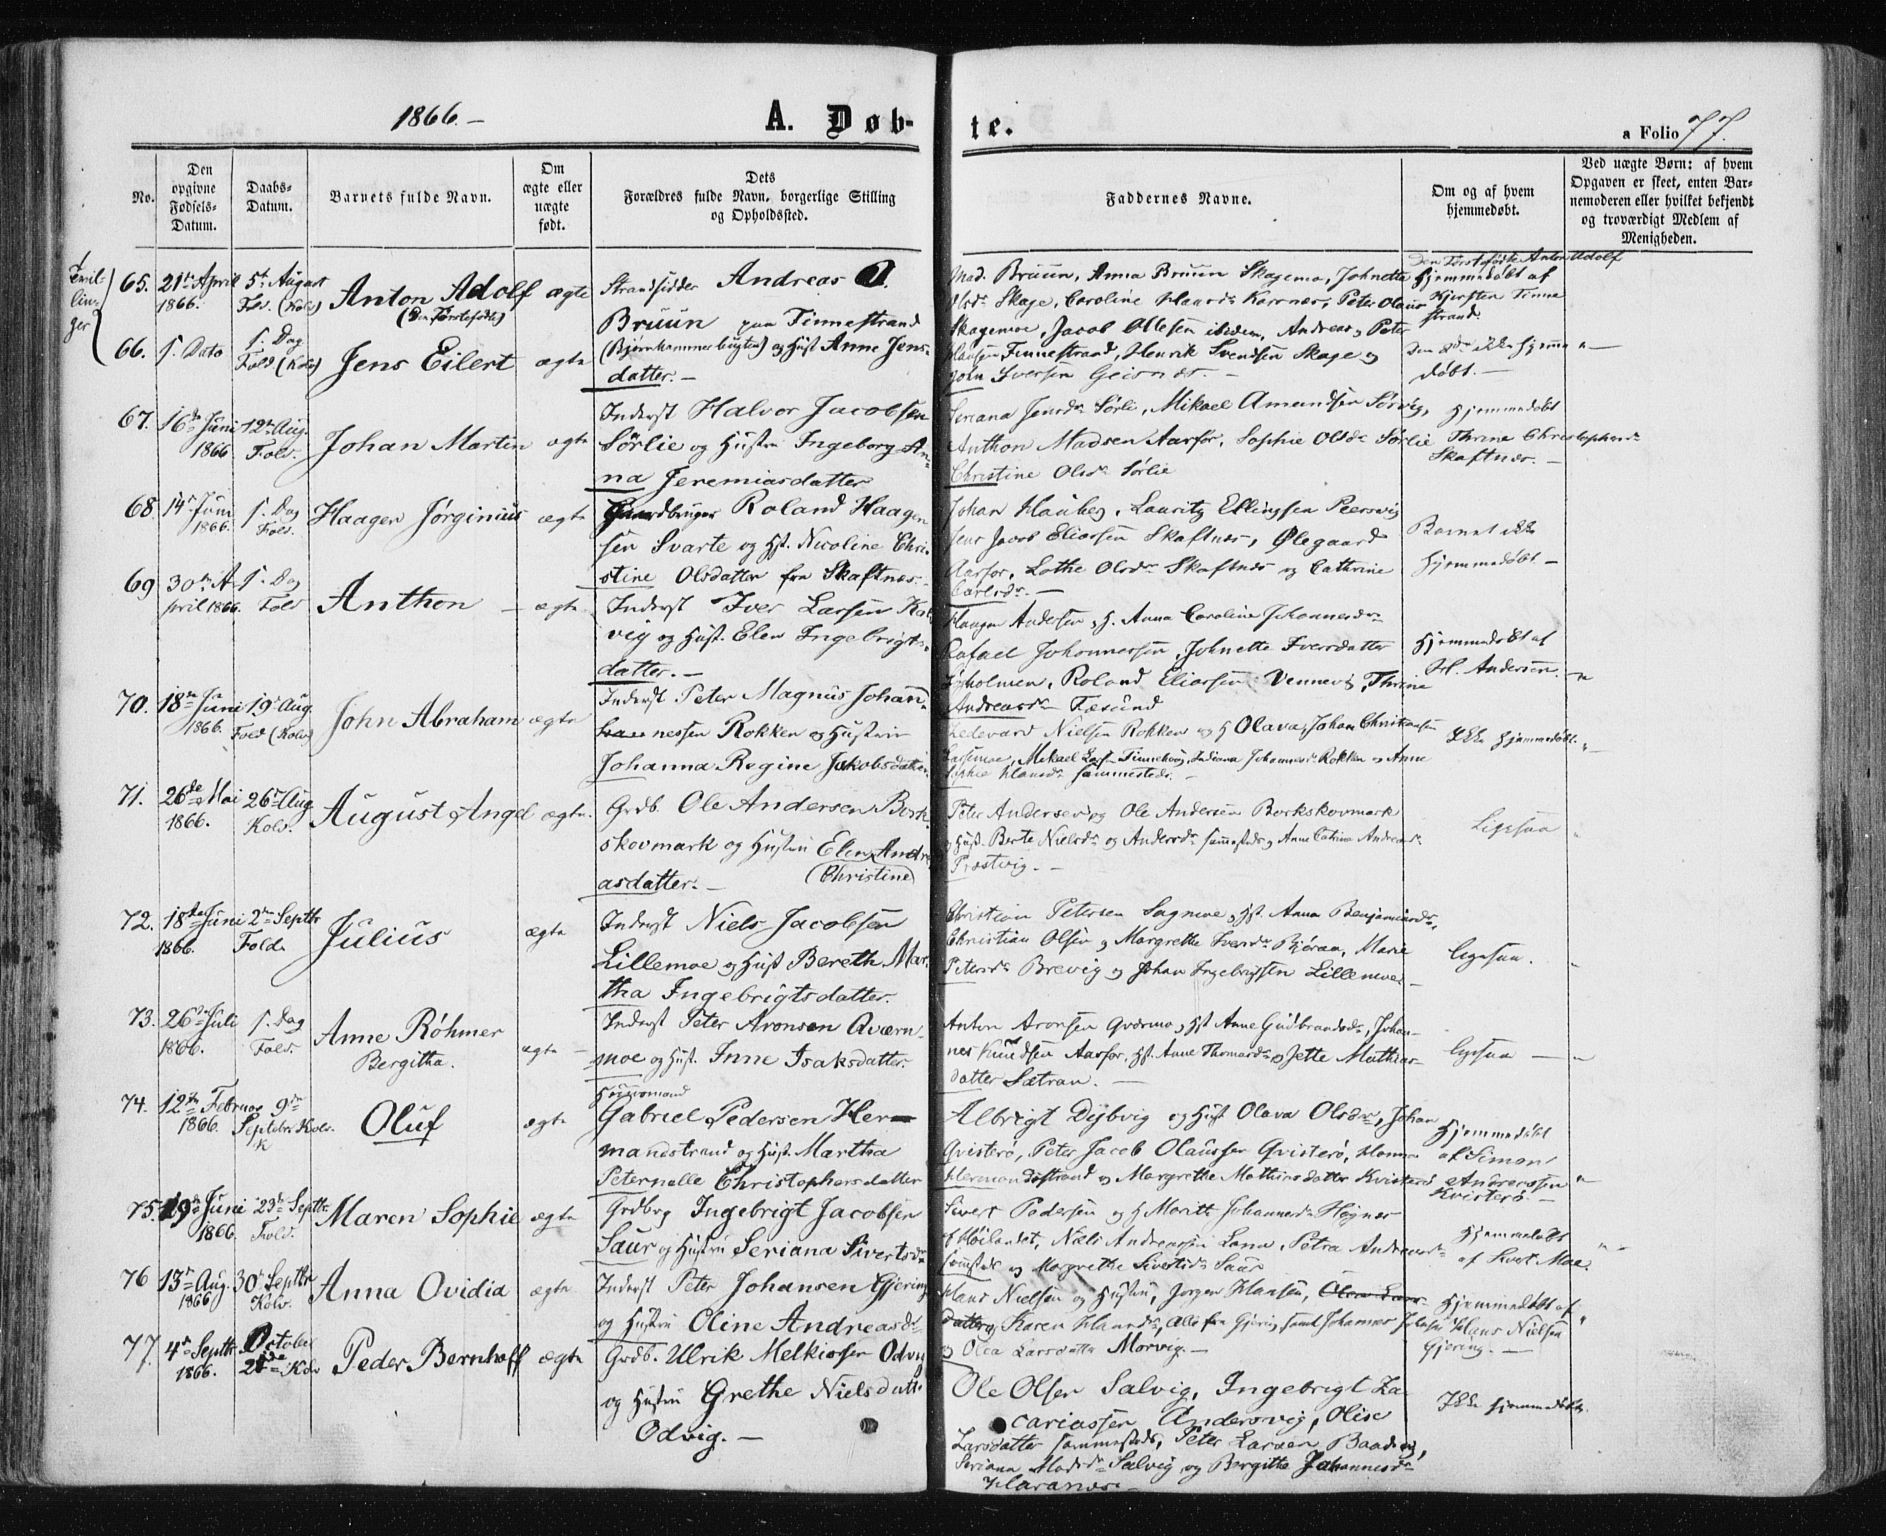 1866.— A. Døb-
te. a Folio 77.
No.
Den opgivne Fødsels-Datum.
Daabs-Datum.
Barnets fulde Navn.
Om ægte eller uægte født.
Dets Forældres fulde Navn, borgerlige Stilling og Opholdssted.
Faddernes Navne.
Om og af hvem hjemmedøbt.
Ved uægte Børn: af hvem Opgaven er skeet, enten Barnemoderen eller hvilket bekjendt og troværdigt Medlem af Menigheden.
Tvil-
lin-
ger
65. 21de April 1866. 5te August Fold. (Kolv) Anton Adolf (Den Førstefødte) ægte
Strandsidder Andreas
Bruun paa Finnestrand
(Bjørnhammerbugten) og Hust Anne Jens-
datter.—
Mad. Bruun, Anna Bruun Skagemo, Johnette
Olsdr Skage, Caroline Hansdr, Peter Olaus
Skagemoe, Jacob Ottesen ibidem, Andreas og Peter
Hansen Finnestrand, Henrik Svendsen Skage og
John Iversen Geisnes.—
Den Førstefødte Anton Adolf
Hjemmedøbt af
Kjersten Finne
strand.
66. S. Dato S. Dag Fold (Kolv) Jens Eilert ægte
Den 2de ikke hjemme
døbt.—
67. 16de Juni 1866 12te Aug. Fold. Johan Martin ægte
Inderst Halvor Jacobsen
Sørlie og Hustru Ingeborg An-
na Jeremiasdatter
Seriana Jensdr Sørli, Mikael Amundsen Sørvig,
Anthon Madsen Aarfor, Sophie Olsdr Sørlie
Christine Olsdr Sørlie
Hjemmedøbt
Thrine Christophersdr
Skaftnæs.—
68. 14de Juni 1866. S. Dag Fold. Haagen Jørginius ægte
Gaardbruger Roland Haagen
sen Svarte og Hst. Nicoline Chri-
stine Olsdatter fra Skaftnæs.
Johan Hauberg, Lauritz Ellingsen Peersvig
Jens Jacob Eliassen Skaftnæs, Ølegaard
Aarfor, Lothe Olsdr Skaftnæs og Cathrine
Carlsdr.—
Barnet ikke
hjemmedøbt—
69 30te April 1866. S. Dag Fold Anthon — ægte
Inderst Iver Larsen Kal
vig og Hust. Elen Ingebrigts-
datter.—
Haagen Andersen, H. Anna Caroline Johannesdr
Rafael Johannessen, Johnette Iversdatter
Roland Eliassen Vennevig, Thrine
Andreasdr Fæsund
Hjemmedøbt af
H. Andersen.
70. 18de Juni 1866. 19de Aug. Fold (Kolv) John Abraham ægte
Inderst Peter Magnus Johan-
nessen Rokken og Hustru
Johanna Regine Jakobsdatter
Edevard Nielsen Rokken og H Olava, Johan Christiansen
Mikael Finnehvig, Indiana Johannesdr Rokken og Anne
Sophie Hansdr sammesteds.—
Ikke hjemmedøbt.
71. 26de Mai 1866. 26de Aug. Kolv. August Angel ægte.
Grdb. Ole Andersen Bork-
skovmark og Hustru Elen Andre
(Christine)
asdatter.—
Peter Andersen og Ole Andersen Borkskovmark
og Hust. Berte Nielsdr og Andersdr sammesteds, Anne Catrina Andreasdr
Præstvig.—
Ligesaa
72. 18de Juni 1866. 2den Septbr Fold. Julius ægte
Inderst Niels Jacobsen
Lillemoe og Hust Bereth Mar-
tha Ingebrigtsdatter.
Christian Petersen Sagmoe, Hst. Anna Benjaminsdr,
Christian Olsen og Margrethe Iversdr Bjøraa, Marie
Petersdr Brevig og Johan Ingebrigtsen Lillemoe
Ligesaa.
73. 26de Juli 1866. S. Dag Fold. Anne Røhmer Bergitha. ægte
Inderst Peter Aronsen Qværn-
moe og Hust. Inne Isaksdatter.
Anton Aronsen Qværmo, Hst Anne Gudbrandsdr, Johan-
nes Knudsen Aarfor, Hst. Anne Thomasdr og Jette Mathias-
datter Sætran.—
Ligesaa —
74. 12te Februar 1866. 9de Septbr Kolv. Oluf ægte
Huusmand
Gabriel Pedersen Her-
mandstrand og Hust. Martha
Peternelle Christophersdatter
Albregt Dybvig og Hust Olava Olsdr, Johan
Qvisterø, Peter Jacob Olaussen Qvisterø, Hanna
Hermandstrand og Margrethe Mathiasdatter Kvisterø
Hjemmedøbt
af Simon
Andreassen
Kvisterø—
75. 19de Juni 1866. 23de Septbr. Fold. Maren Sophie ægte
Grdbrg Ingebrigt Jacobsen
Saur og Hustru Seriana Sivertsdr
Sivert Pedersen og H Marith Johannesdr Høgnes
Høilandet, Nels Andreassen Lana, Petra Andreasdr
sammesteds og Margrethe Sivertsdr Saur
Hjemmedøbt
af Sivert Moe
76 13de Aug. 1866 30te Septbr Kolv. Anna Ovidia ægte
Inderst Peter Johansen Gjering
og Hustru Oline Andreasdr
Hans Nielsen og Hustru, Jørgen Hansen,
Karen Hansdr, Alle fra Gjering samt Johannes
og Olea Larsdatter Morvig.—
Hjemmedøbt af
Hans Nielsen
Gjering.—
77. 4de Septbr 1866. October Kolv Peder Bernhoff ægte
Grdb. Ulrik Melkiorsen Odvig
og Hustru Grethe Nielsdatter
Odvig.—
Ole Olsen Salvig, Ingebrigt Za-
cariassen Andersvig, Olise
Larsdatter sammesteds, Peter Larsen
Seriana Madsdr Salvig og Bergitha Johannesdr
Haranæs—
Ikke hjemmedøbt.